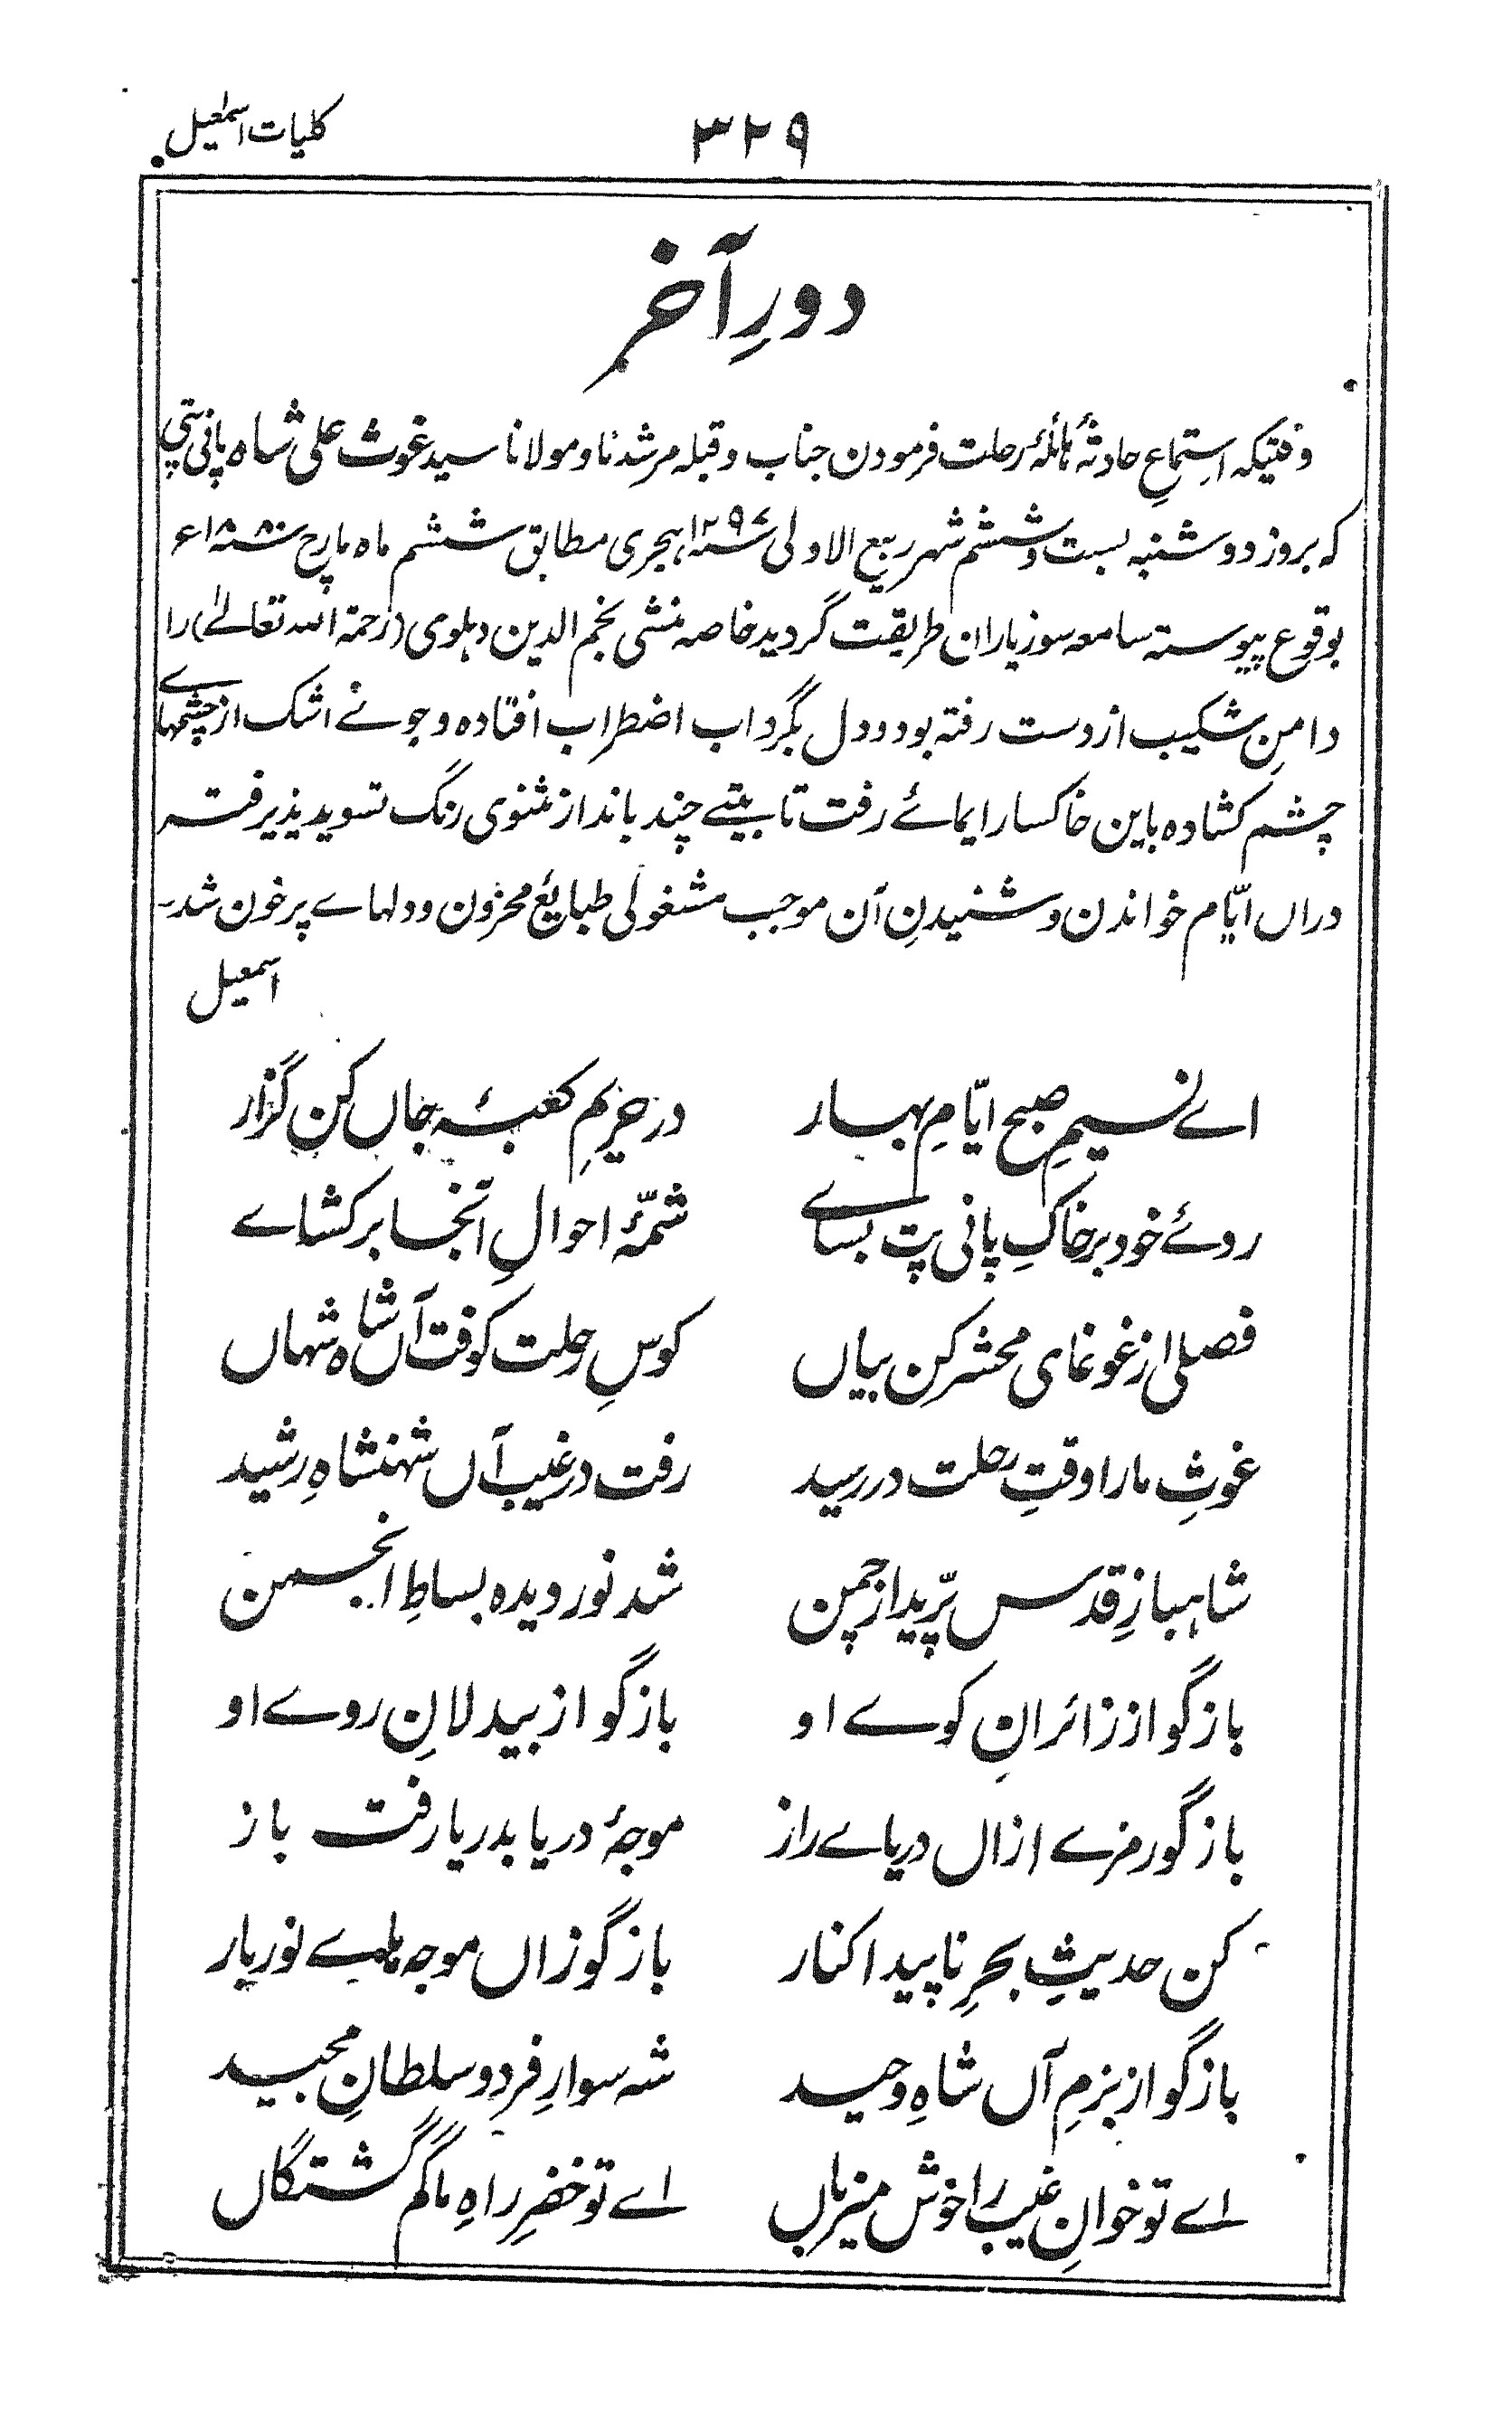 کلیات اسمٰعیل
۳۲۹
دورِ آخر
وقتیکہ استماعِ حادثۂ ہائلۂ رحلت فرمودن جناب و قبلہ مرشدنا و مولانا سید غوث علی شاہ پانی پتی
کہ بروز دوشنبہ بست و ششم شہر ربیع الاولیٰ ۱۲۹۷؁ ہجری مطابق ششم ماہ مارچ ۱۸۸۰؁ء
بوقوع پیوستہ سامعہ سوز یاران طریقت گردید خاصہ منشی نجم الدین دہلوی (رحمۃ اللہ تعالےٰ) را
دامنِ شکیب از دست رفتہ بود و دل بگرداب اضطراب افتادہ و جوئے اشک از چشمہائے
چشم کشادہ باین خاکسار ایمائے رفت تا بیتے چند بانداز مثنوی رنگ تسوید پذیرفتہ
دراں ایّام خواندن و شنیدنِ آن موجب مشغولی طبایع محزون و دلہاے پرخون شد۔
اسمعیل
اے نسیمِ صبح ایّامِ بہار در حریمِ کعبۂ جاں کن گزار
روئے خود بر خاکِ پانی پت بساے شمّۂ احوالِ آنجا بر کشاے
فصلی از غوغای محشر کن بیاں کوسِ رحلت کوفت آں شاہ شہاں
غوثِ مارا وقتِ رحلت در رسید رفت در غیب آں شہنشاہِ رشید
شاہبازِ قدس پرّید از چمن شد نوردیدہ بساطِ انجمن
باز گو از زائرانِ کوے او باز گو از بیدلانِ روے او
باز گو رمزے ازاں دریاے راز موجۂ دریا بدریا رفت باز
کن حدیثِ بحرِ ناپیدا کنار باز گو زاں موجہ ہاے نور بار
باز گو از بزمِ آں شاہِ وحید شہ سوارِ فرد و سلطانِ مجید
اے تو خوانِ غیب را خوش میزباں اے تو خضرِ راہِ ما گم گشتگاں